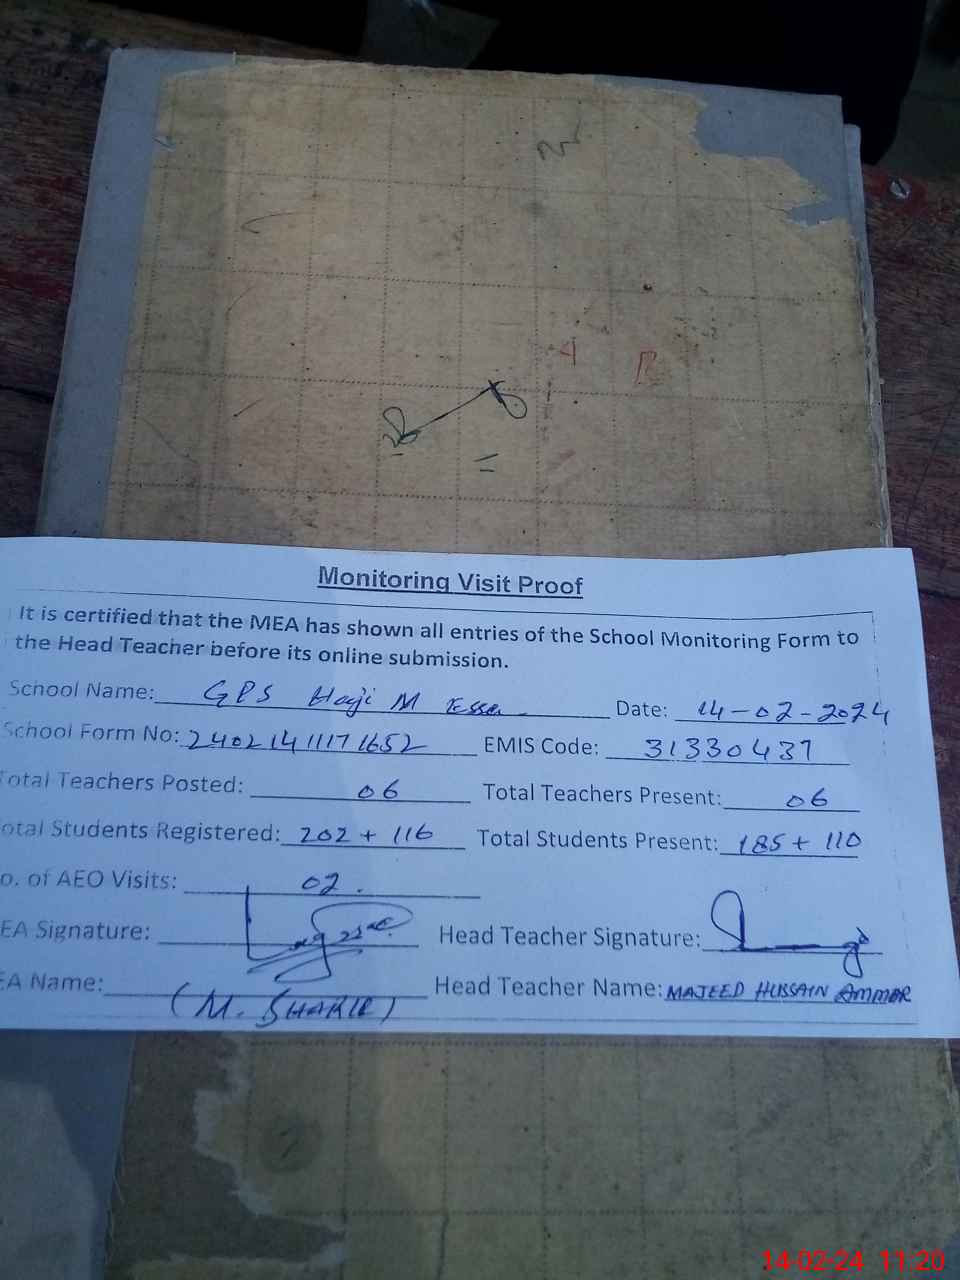 Monitoring Visit Proof
It is certified that the MEA has shown all entries of the School Monitoring Form to
the Head Teacher before its online submission.
School Name: GPS Haji M Essa Date: 14-02-2024
School Form No: 24021411171652 EMIS Code: 31330437
Total Teachers Posted: 06 Total Teachers Present: 06
otal Students Registered: 202 + 116 Total Students Present: 185 + 110
o. of AEO Visits: 02.
EA Signature: Head Teacher Signature:
EA Name: (M. SHARIF) Head Teacher Name: MAJEED HUSSAIN AMMAR
14-02-24 11:20